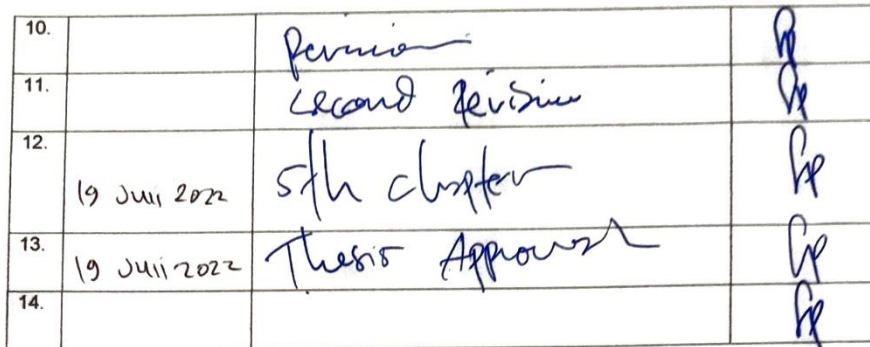 10. Revision
11. second Revision
12. 19 Juli 2022 5th chapter
13. 19 Juli 2022 Thesis Approval
14.